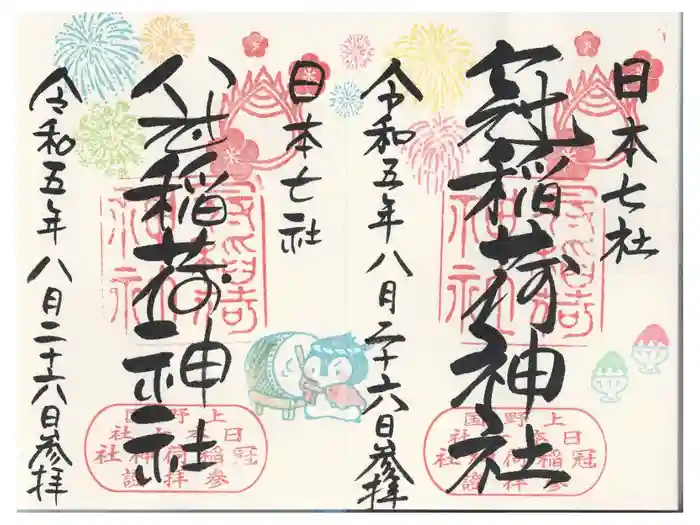 日本七社
冠稲荷神社
令和五年八月二十六日參拝
上野国
日本七社
冠稲荷神社
參拝證
日本七社
稲荷神社
令和五年八月二十六日參拝
上野国
日本七社
冠稲荷神社
參拝證